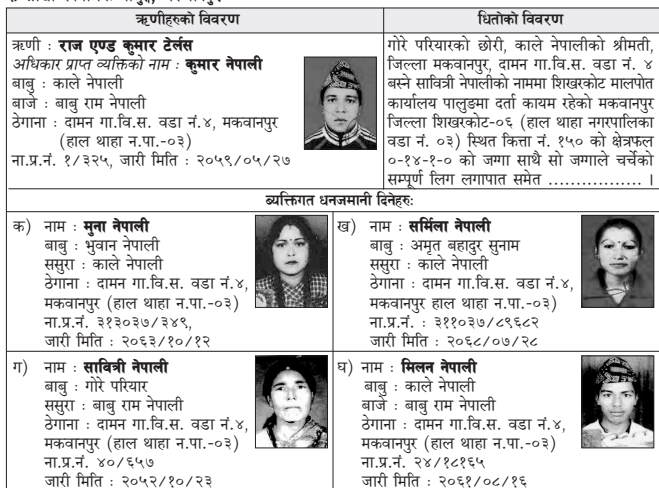 ऋणीहरुको विवरण
धितोको विवरण
ऋणी : राज एण्ड कुमार टेर्लस
अधिकार प्राप्त व्यक्तिको नाम : कुमार नेपाली
बाबु : काले नेपाली
बाजे : बाबु राम नेपाली
ठेगाना : दामन गा.वि.स. वडा नं.४, मकवानपुर
(हाल थाहा न.पा.-०३)
ना.प्र.नं. १/३२५, जारी मिति : २०५९/०५/२७
गोरे परियारको छोरी, काले नेपालीको श्रीमती,
जिल्ला मकवानपुर, दामन गा.वि.स. वडा नं. ४
बस्ने सावित्री नेपालीको नाममा शिखरकोट मालपोत
कार्यालय पालुङमा दर्ता कायम रहेको मकवानपुर
जिल्ला शिखरकोट-०६ (हाल थाहा नगरपालिका
वडा नं. ०३) स्थित कित्ता नं. १५० को क्षेत्रफल
०-१४-१-० को जग्गा साथै सो जग्गाले चर्चेको
सम्पूर्ण लिग लगापात समेत ................. ।
ब्यक्तिगत धनजमानी दिनेहरु:
क) नाम : मुना नेपाली
बाबु : भुवान नेपाली
ससुरा : काले नेपाली
ठेगाना : दामन गा.वि.स. वडा नं.४,
मकवानपुर (हाल थाहा न.पा.-०३)
ना.प्र.नं. ३१३०३७/३४९,
जारी मिति : २०६३/१०/१२
ख) नाम : सर्मिला नेपाली
बाबु : अमृत बहादुर सुनाम
ससुरा : काले नेपाली
ठेगाना : दामन गा.वि.स. वडा नं.४,
मकवानपुर हाल थाहा न.पा.-०३)
ना.प्र.नं. : ३११०३७/८९६८२
जारी मिति : २०६८/०७/२८
ग) नाम : सावित्री नेपाली
बाबु : गोरे परियार
ससुरा : बाबु राम नेपाली
ठेगाना : दामन गा.वि.स. वडा नं.४,
मकवानपुर (हाल थाहा न.पा.-०३)
ना.प्र.नं. ४०/६५७
जारी मिति : २०५२/१०/२३
घ) नाम : मिलन नेपाली
बाबु : काले नेपाली
बाजे : बाबु राम नेपाली
ठेगाना : दामन गा.वि.स. वडा नं.४,
मकवानपुर (हाल थाहा न.पा.-०३)
ना.प्र.नं. २४/१८१६५
जारी मिति : २०६१/०८/१६